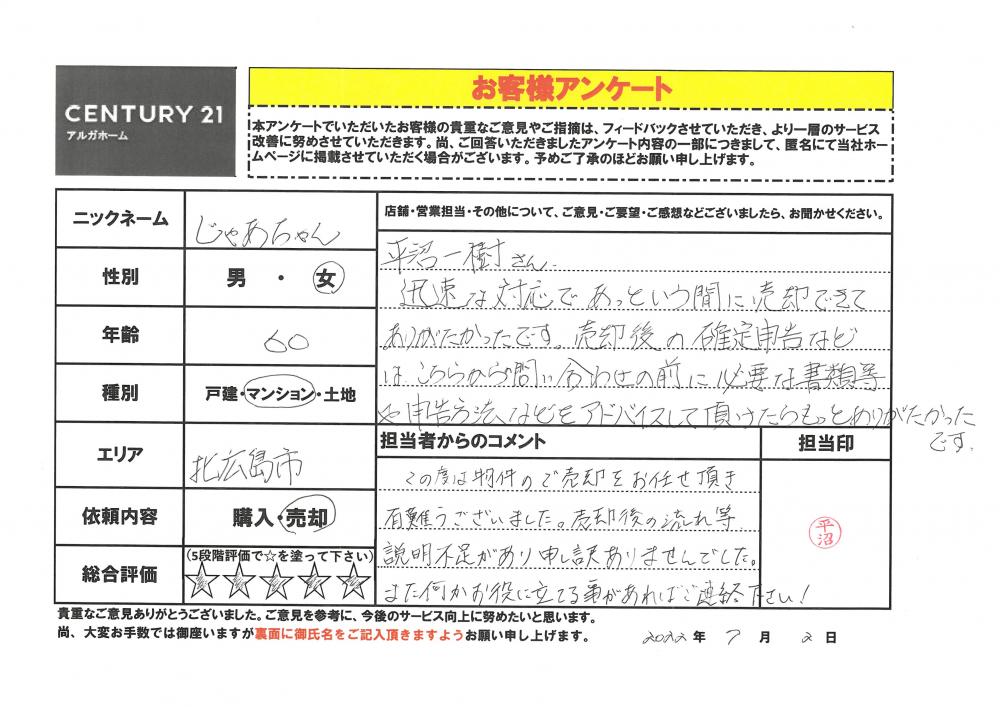 CENTURY 21
アルガホーム
お客様アンケート
本アンケートでいただいたお客様の貴重なご意見やご指摘は、フィードバックさせていただき、より一層のサービス
改善に努めさせていただきます。尚、ご回答いただきましたアンケート内容の一部につきまして、匿名にて当社ホー
ムページに掲載させていただく場合がございます。予めご了承のほどお願い申し上げます。
ニックネーム
じゃあちゃん
性別
男・女
年齢
60
種別
戸建・マンション・土地
エリア
北広島市
依頼内容
購入・売却
総合評価
(5段階評価で☆を塗って下さい)
店舗・営業担当・その他について、ご意見・ご要望・ご感想などございましたら、お聞かせください。
平沼一樹さん
迅速な対応であっという間に売却できて
ありがたかったです。売却後の確定申告など
は こちらから問い合わせの前に必要な書類等
や申告方法などをアドバイスして頂けたらもっとありがたかった
です。
担当者からのコメント
担当印
この度は物件のご売却をお任せ頂き
有難うございました。売却後の流れ等
説明不足があり申し訳ありませんでした。
また何かお役に立てる事があればご連絡下さい!
平沼
貴重なご意見ありがとうございました。ご意見を参考に、今後のサービス向上に努めたいと思います。
尚、大変お手数では御座いますが裏面に御氏名をご記入頂きますようお願い申し上げます。
2022年 7月 2日